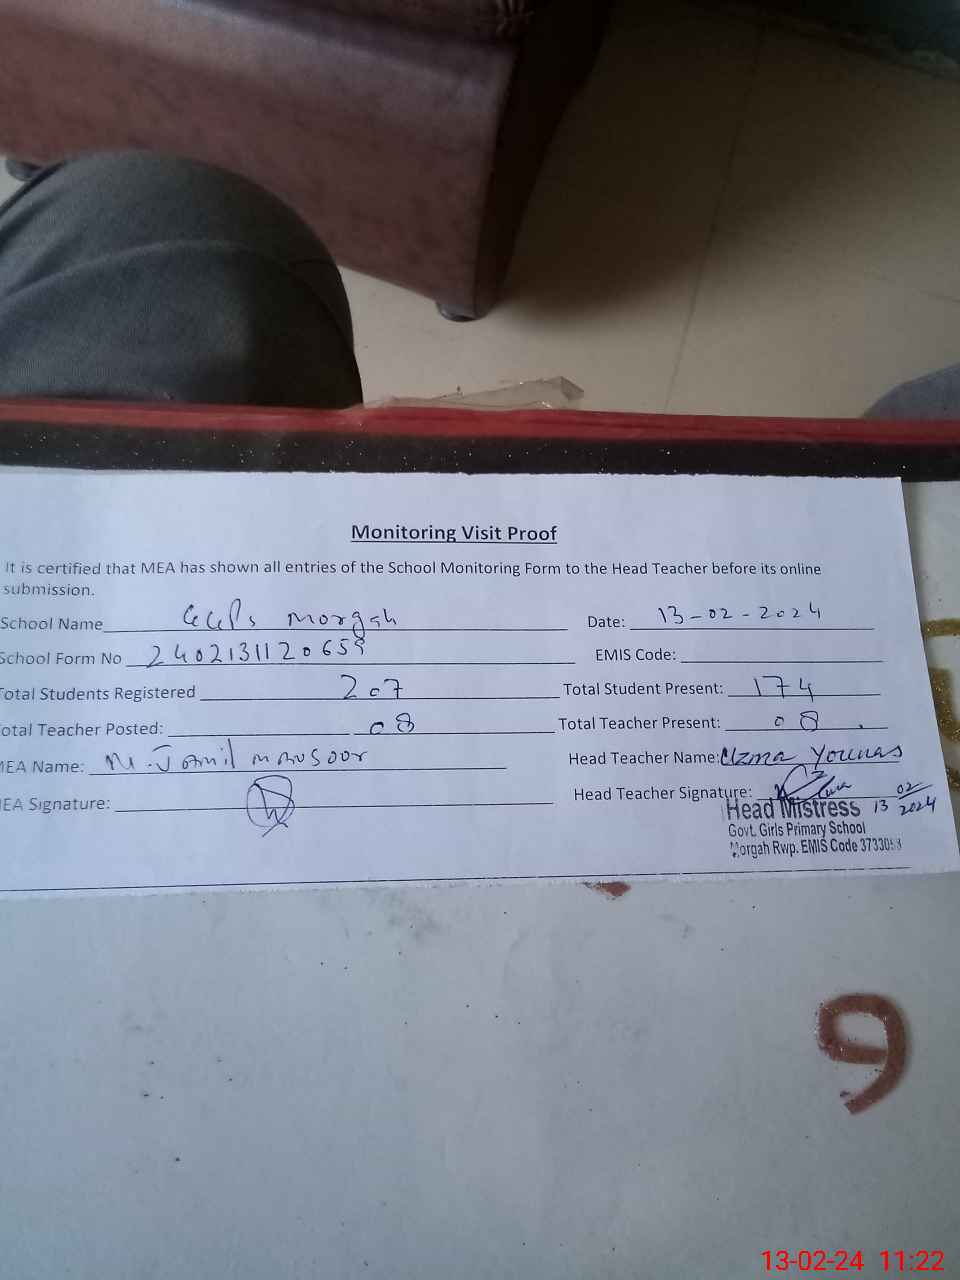 Monitoring Visit Proof
It is certified that MEA has shown all entries of the School Monitoring Form to the Head Teacher before its online
submission.
School Name GGPS Morgah Date: 13-02-2024
School Form No 2402131120659 EMIS Code:
Total Students Registered 207 Total Student Present: 174
otal Teacher Posted: 08 Total Teacher Present: 08
MEA Name: M. Jamil Mansoor Head Teacher Name: Uzma Younas
EA Signature: Head Teacher Signature:
Head Mistress 13 02 2024
Govt. Girls Primary School
Morgah Rwp. EMIS Code
9
13-02-24 11:22